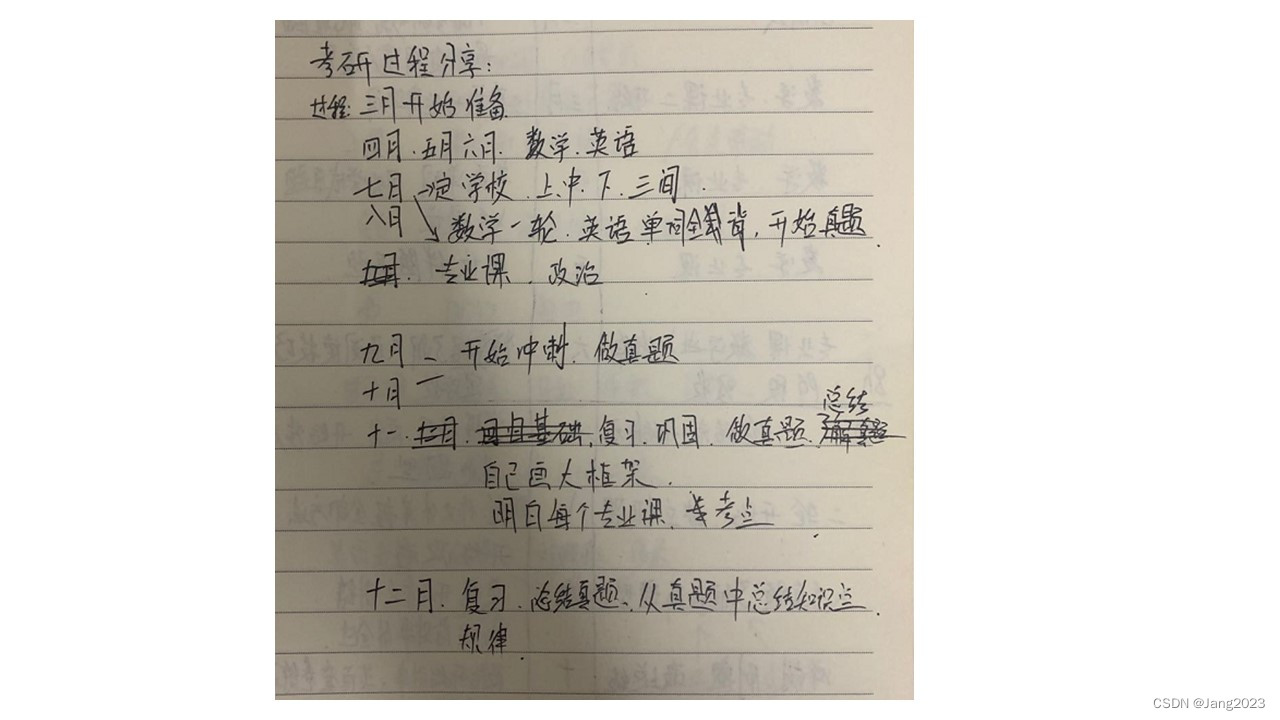 考研过程分享：
过程：三月开始准备
四月.五月六月. 数学.英语
七月→定学校.上.中.下.三间.
八月 数学一轮.英语单词全背,开始真题.
专业课.政治
九月 开始冲刺.做真题
十月
总结
十一 复习.巩固.做真题.
自己画大框架.
明白每个专业课.考点.
十二月.复习.总结真题、从真题中总结知识点.
规律.
CSDN @Jang2023